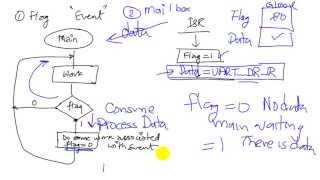 ① Flag "Event"
② mailbox
data
Main
Work
0
flag
1
Consume
Process Data
Do some work associated
flag=0 with Event
1
ISR
Flag=1
Data=UART_DR_R
Global
Flag 80
Data ✓
flag=0 No data
main waiting
=1 There is data